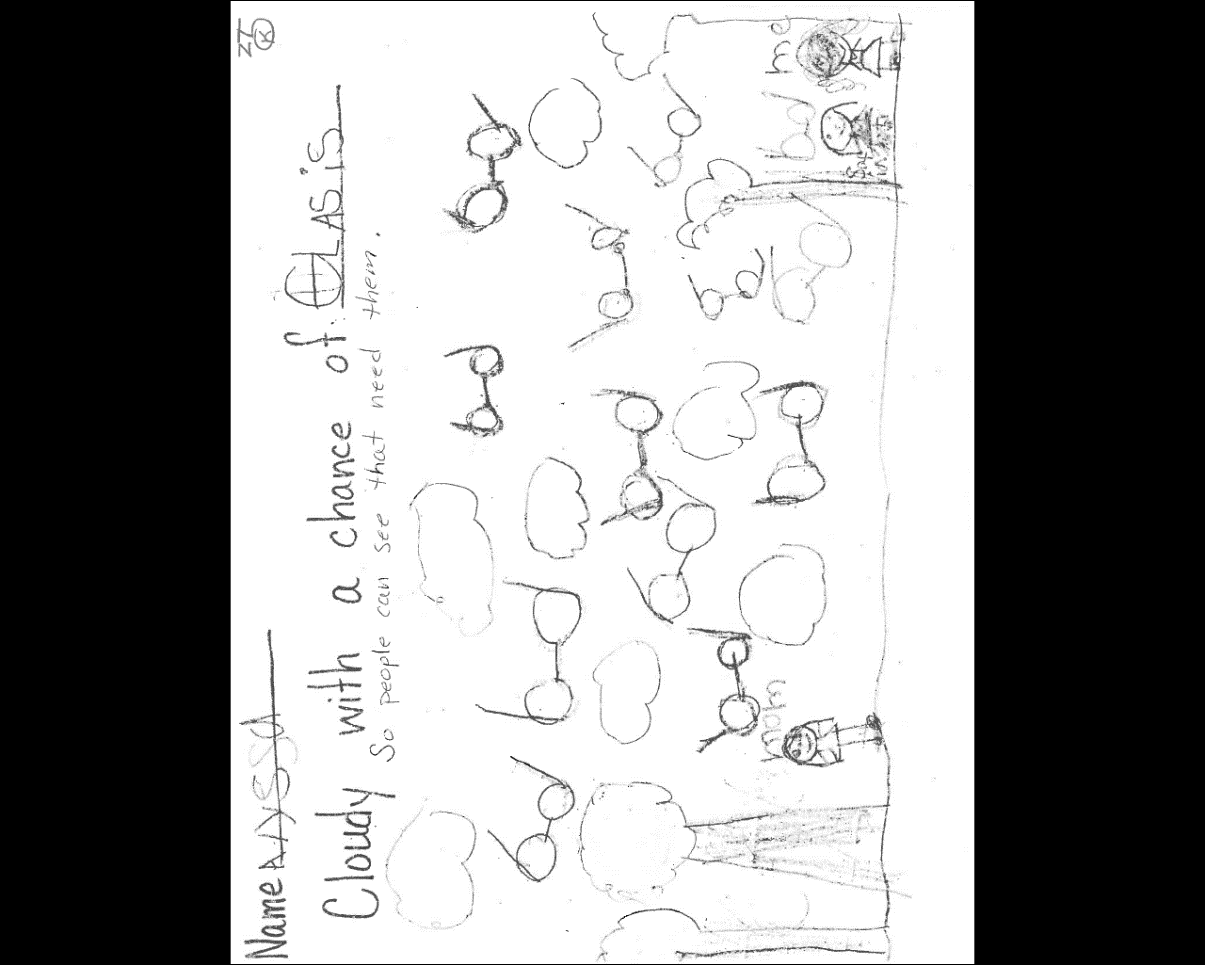 Name Alyssa
Cloudy with a chance of GLASiS
So people can see that need them.
Mom
me